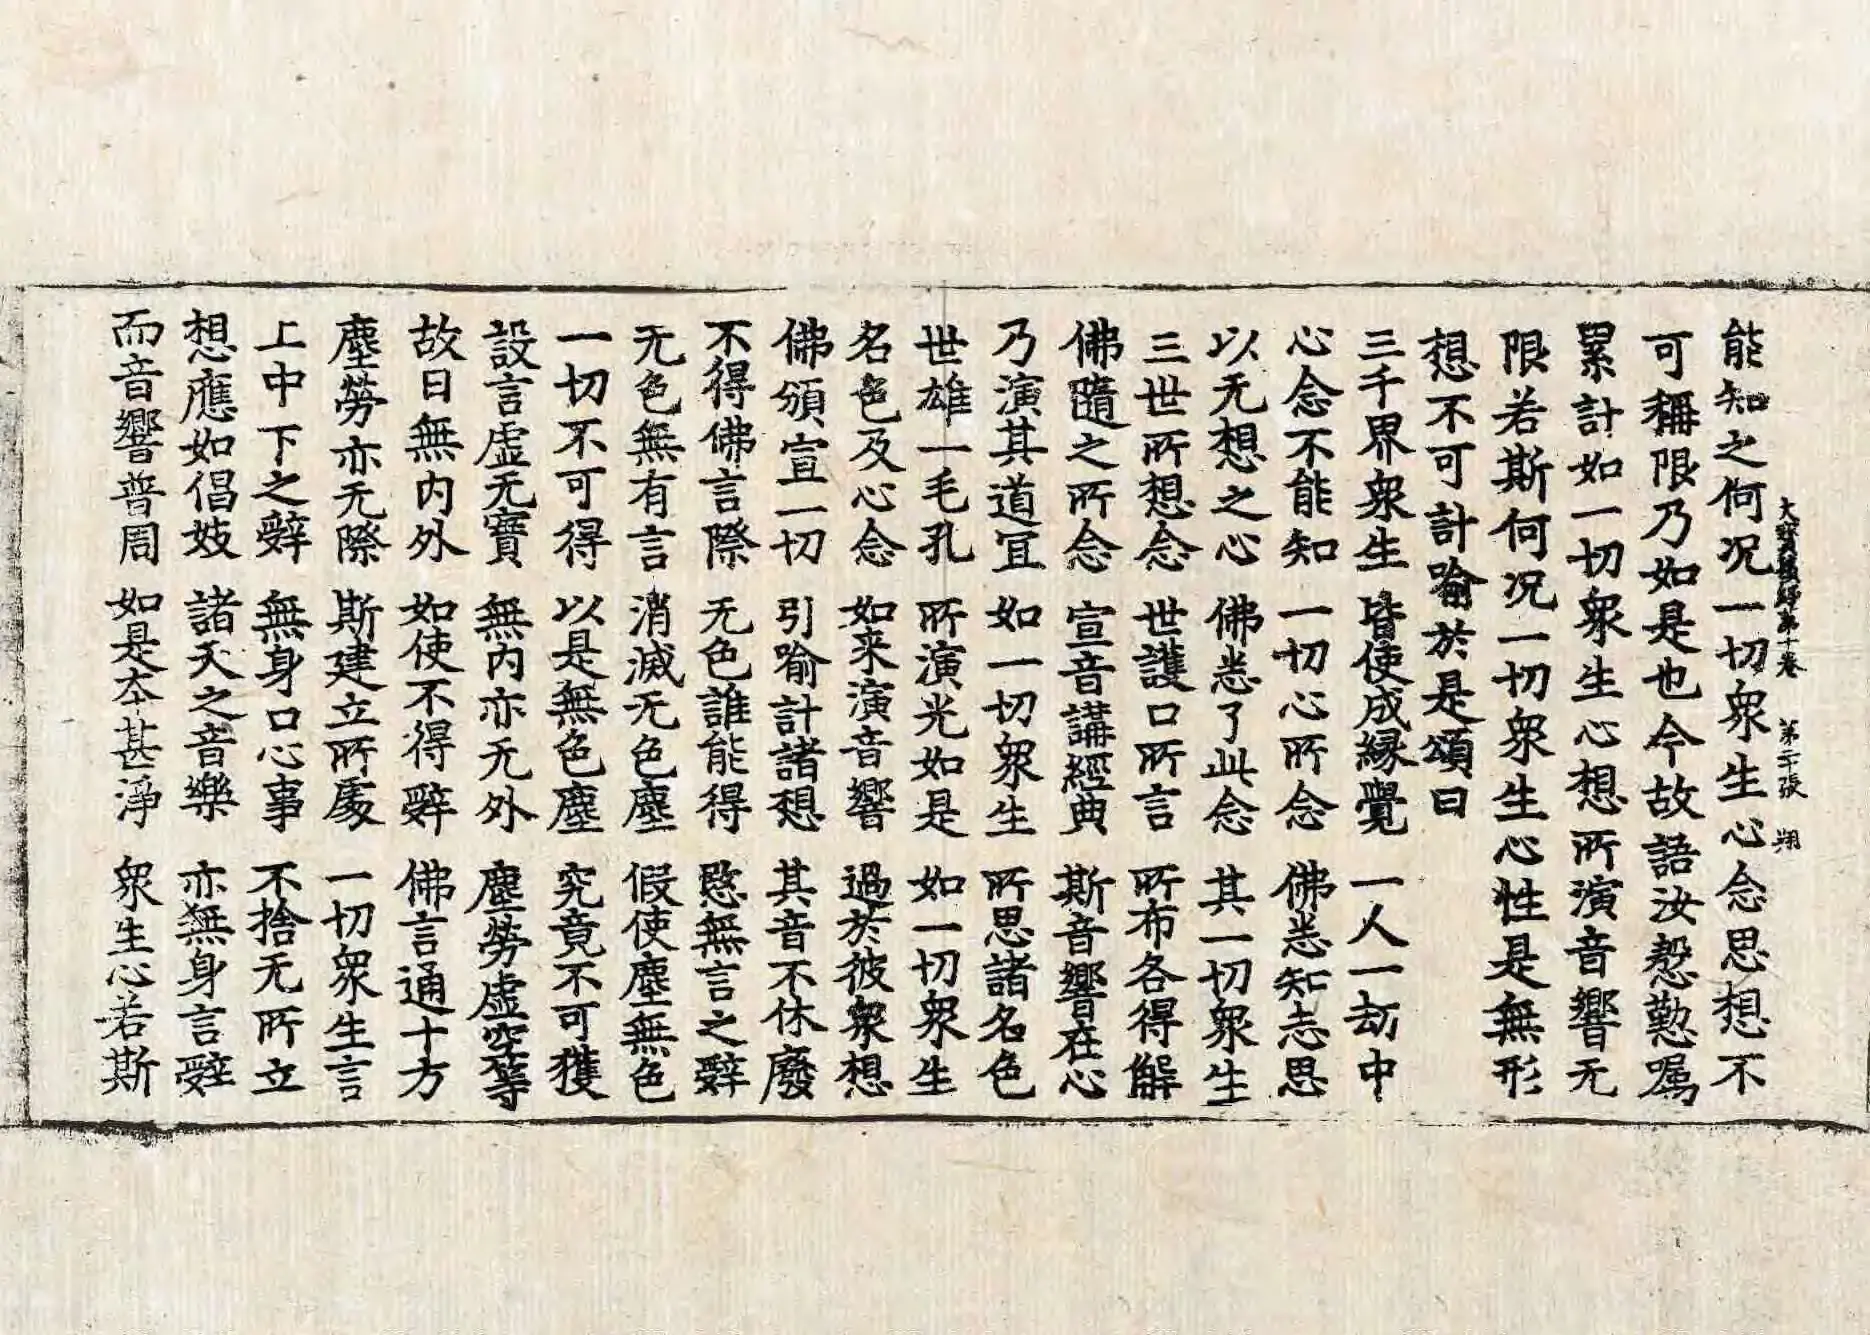 大寶積經第十卷 第二十張 翔
能知之何况一切衆生心念思想不
可稱限乃如是也今故語汝慇懃囑
累計如一切衆生心想所演音響无
限若斯何况一切衆生心性是無形
想不可計喻於是頌曰
三千界衆生 皆使成緣覺 一人一劫中
心念不能知 一切心所念 佛悉知志思
以无想之心 佛悉了此念 其一切衆生
三世所想念 世護口所言 所布各得解
佛隨之所念 宣音講經典 斯音響在心
乃演其道宜 如一切衆生 所思諸名色
世雄一毛孔 所演光如是 如一切衆生
名色及心念 如来演音響 過於彼衆想
佛頒宣一切 引喻計諸想 其音不休廢
不得佛言際 无色誰能得 愍無言之辭
无色無有言 消滅无色塵 假使塵無色
一切不可得 以是無色塵 究竟不可獲
設言虛无實 無內亦无外 塵勞虛空等
故曰無內外 如使不得辭 佛言通十方
塵勞亦无際 斯建立所處 一切衆生言
上中下之辭 無身口心事 不捨无所立
想應如倡妓 諸天之音樂 亦無身言辭
而音響普周 如是夲甚淨 衆生心若斯